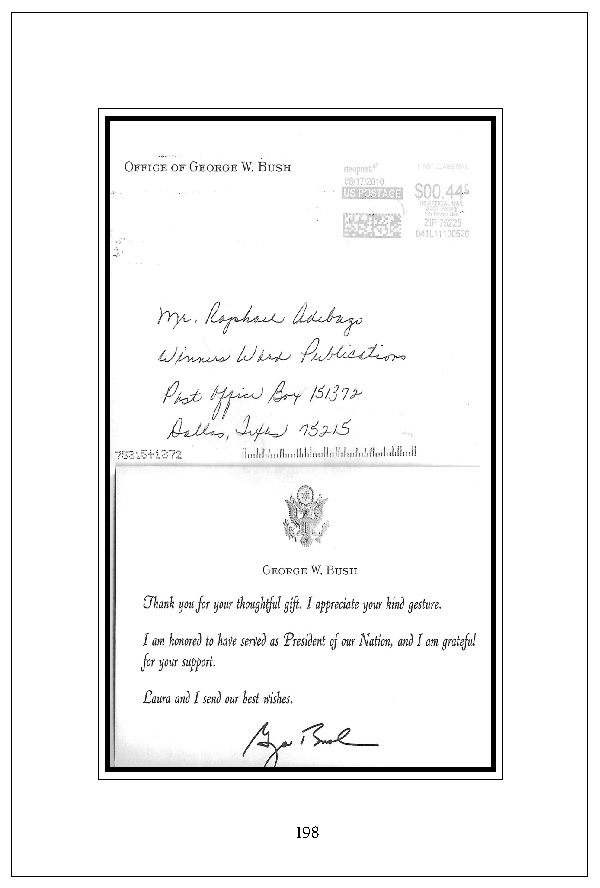 OFFICE OF GEORGE W. BUSH
neopost
FIRST CLASS MAIL
08/17/2010
US POSTAGE
$00.44⁵
ZIP 75225
041L11130526
Mr. Raphael Adebayo
Winners Ward Publications
Post Office Box 151372
Dallas, Texas 75215
75215+1372
GEORGE W. BUSH
Thank you for your thoughtful gift. I appreciate your kind gesture.
I am honored to have served as President of our Nation, and I am grateful
for your support.
Laura and I send our best wishes.
198